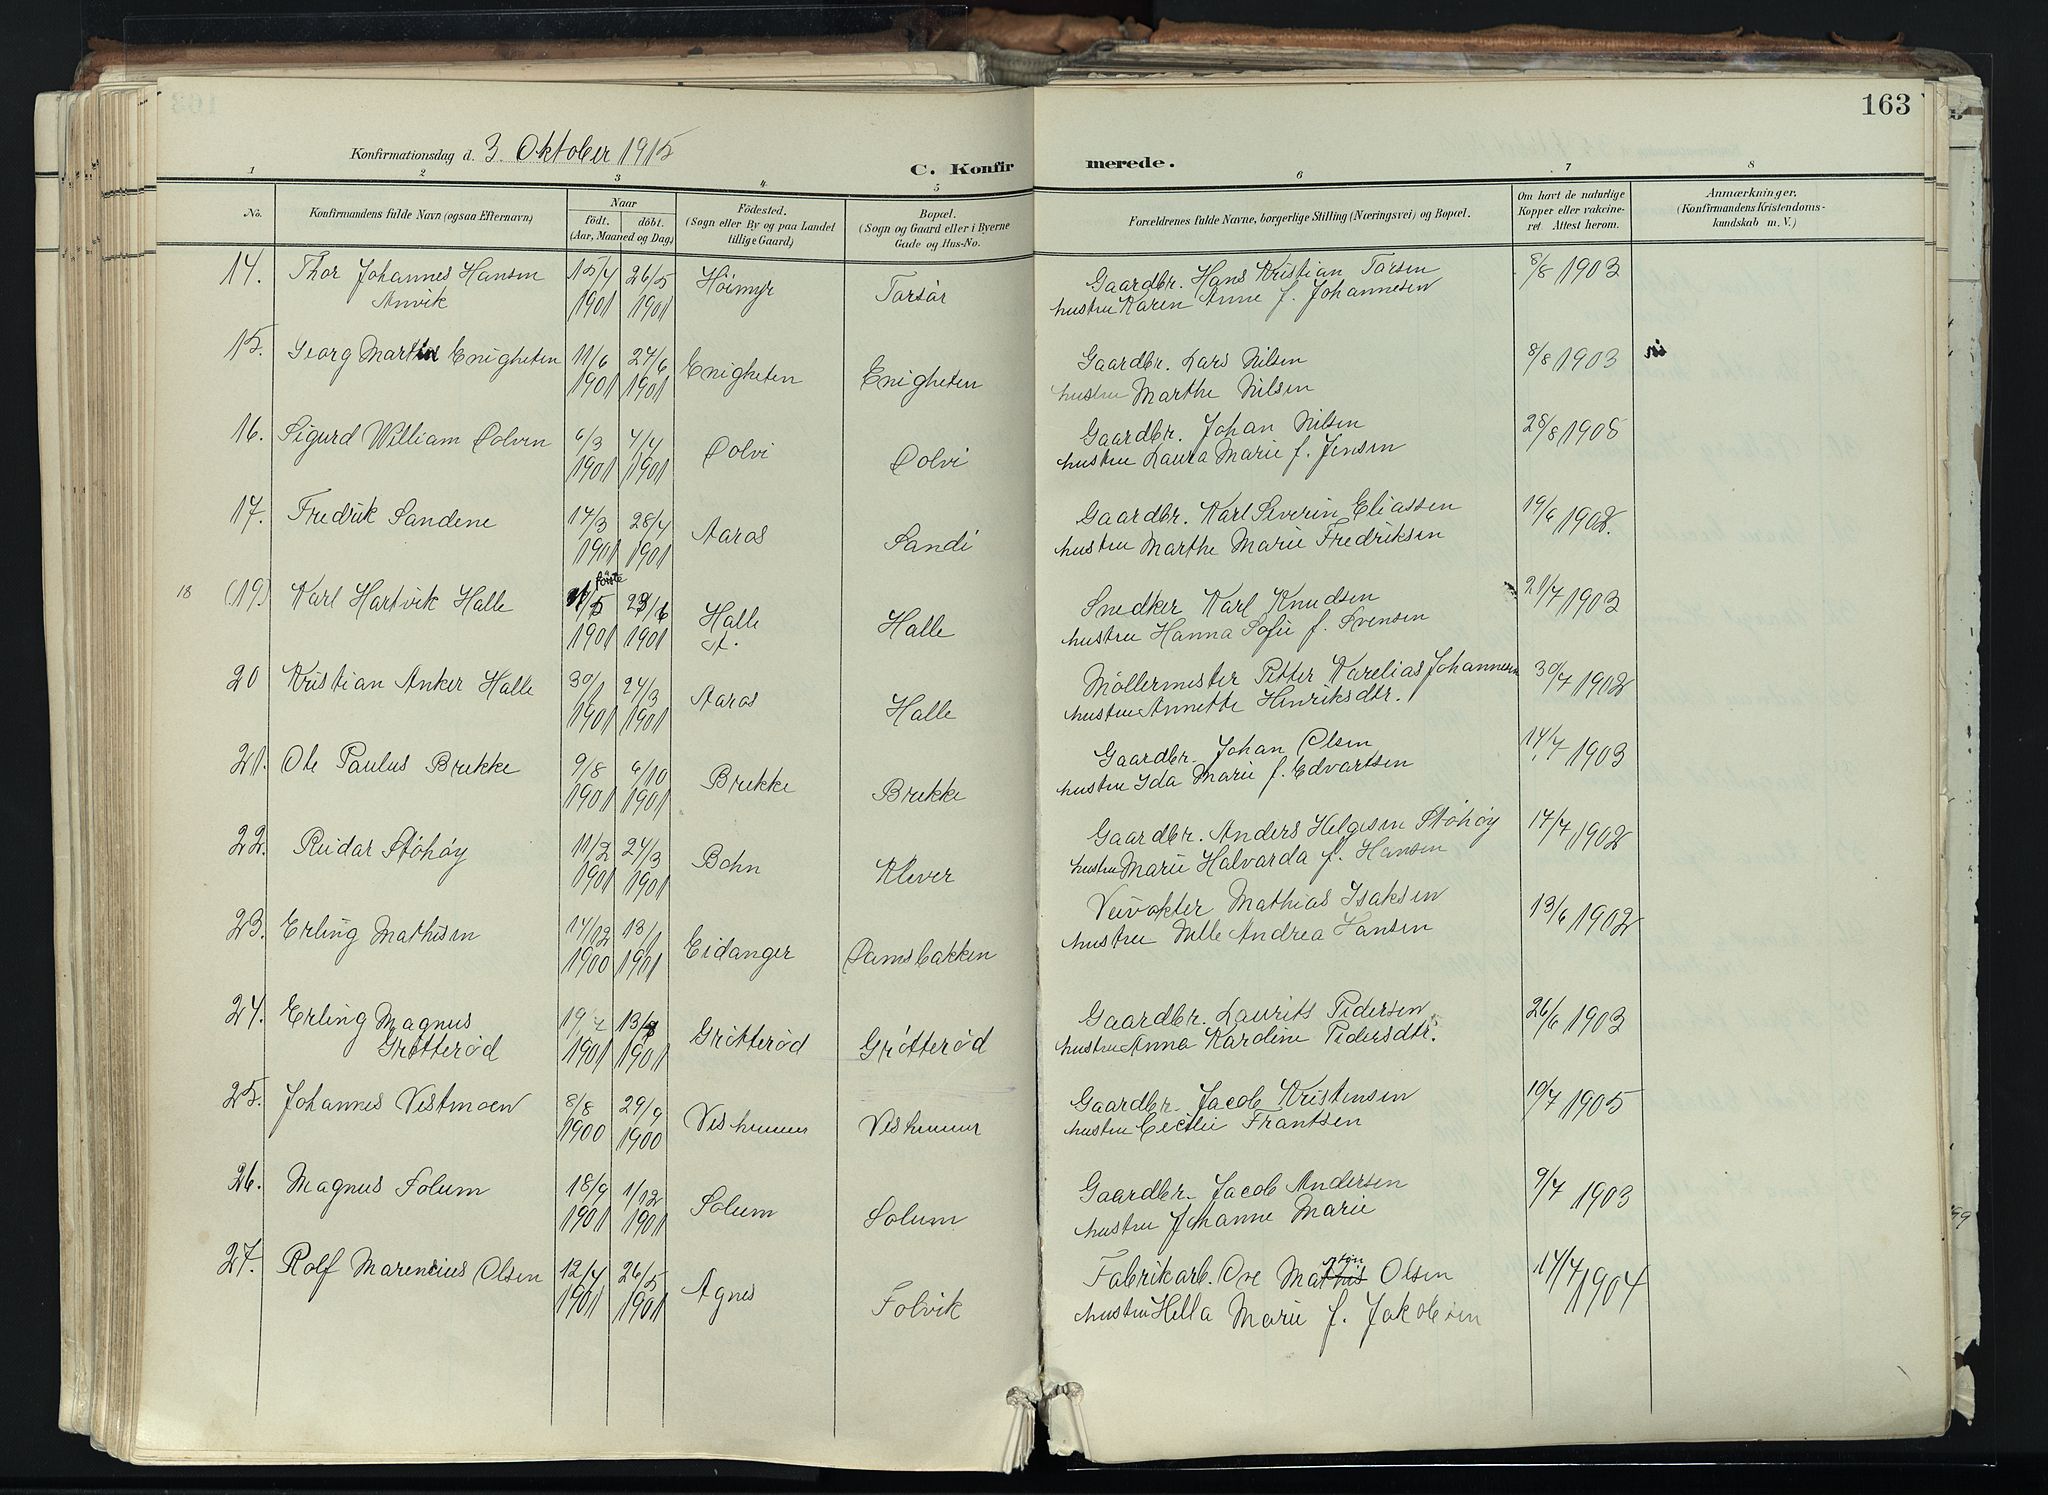 163
Konfirmationsdag d. 3. Oktober 1915
C. Konfirmerede.
1 2 3 4 5 6 7 8
No. Konfirmandens fulde Navn (ogsaa Efternavn) Naar födt. döbt. (Aar, Maaned og Dag) Födested. (Sogn eller By og paa Landet tillige Gaard) Bopæl. (Sogn og Gaard eller i Byerne Gade og Hus-No. Forældrenes fulde Navne, borgerlige Stilling (Næringsvei) og Bopæl. Om havt de naturlige Kopper eller vakcineret Attest herom. Anmærkninger. (Konfirmandens Kristendomskundskab m. V.)
14. Thor Johannes Hansen 15/4 26/5 Höimyr Torsör Gaardbr. Hans Kristian Torsen 8/8 1903
Anvik 1901 1901 hustru Karen Anne f. Johannesen
15. Georg Martin Enigheten 11/6 27/6 Enigheten Enigheten Gaardbr. Lars Nilsen 8/8 1903 in
1901 1901 hustru Marthe Nilsen
16. Sigurd William Dolven 6/3 4/4 Dolvi Dolvi Gaardbr. Johan Nilsen 28/8 1908
1901 1901 hustru Laura Marie f. Jensen
17. Fredrik Sandene 17/3 28/4 Aaros Sandi Gaardbr. Karl Severin Eliassen 19/6 1902
1901 1901 hustru Marthe Marie Fredriksen
18 (19) Karl Hartvik Halle förste 1/5 23/6 Halle Halle Snedker Karl Knudsen 21/7 1903
1901 1901 hustru Hanna Sofie f. Svensen
20 Kristian Anker Halle 30/1 24/3 Aaros Halle Möllermester Petter Karelias Johannesen 30/7 1902
1901 1901 hustru Annette Henriksdtr.
21. Ole Paulus Brekke 9/8 6/10 Brekke Brekke Gaardbr. Johan Olsen 14/7 1903
1901 1901 hustru Ida Marie f. Edvartsen
22. Reidar Stöhöy 11/2 24/3 Bohn Klever Gaardbr. Anders Helgesen Stöhöy 17/7 1902
1901 1901 hustru Marie Halvarda f. Hansen
23. Erling Mathisen 14/12 13/1 Eidanger Damsbakken Veivokter Mathias Isaksen 13/6 1902
1900 1901 hustru Andrea Hansen
24. Erling Magnus 19/7 Grötteröd Grötteröd Gaardbr. Laurits Pedersen 26/6 1903
Grötteröd 1901 1901 hustru Anna Karoline Pedersdtr.
25. Johannes Vestmoen 8/8 29/9 Gaardbr. Jacob Kristensen 10/7 1905
1900 1900 hustru Cecilie Frantsen
26. Magnus Solum 18/9 1/12 Solum Solum Gaardbr. Jacob Andersen 9/7 1903
1901 1901 hustru Johanne Marie
27. Rolf Marencius Olsen 12/4 26/5 Agnes Folvik Fabrikarb. Ove Mathis Olsen 14/7 1904
1901 1901 hustru Hella Marie f. Jakobsen